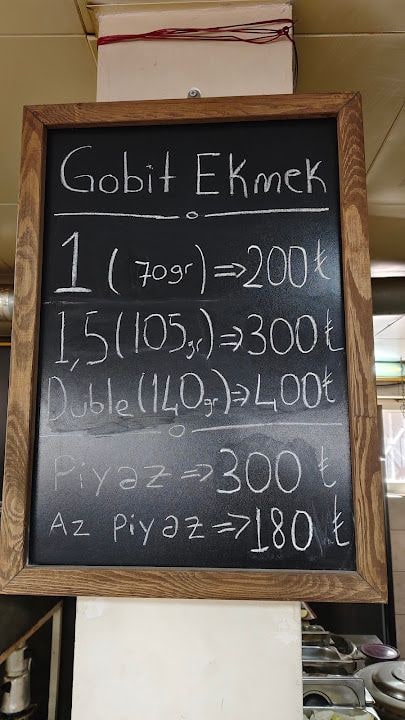 Gobit Ekmek
1 (70gr) => 200₺
1,5 (105gr) => 300₺
Duble (140gr) => 400₺
Piyaz => 300 ₺
Az Piyaz => 180 ₺